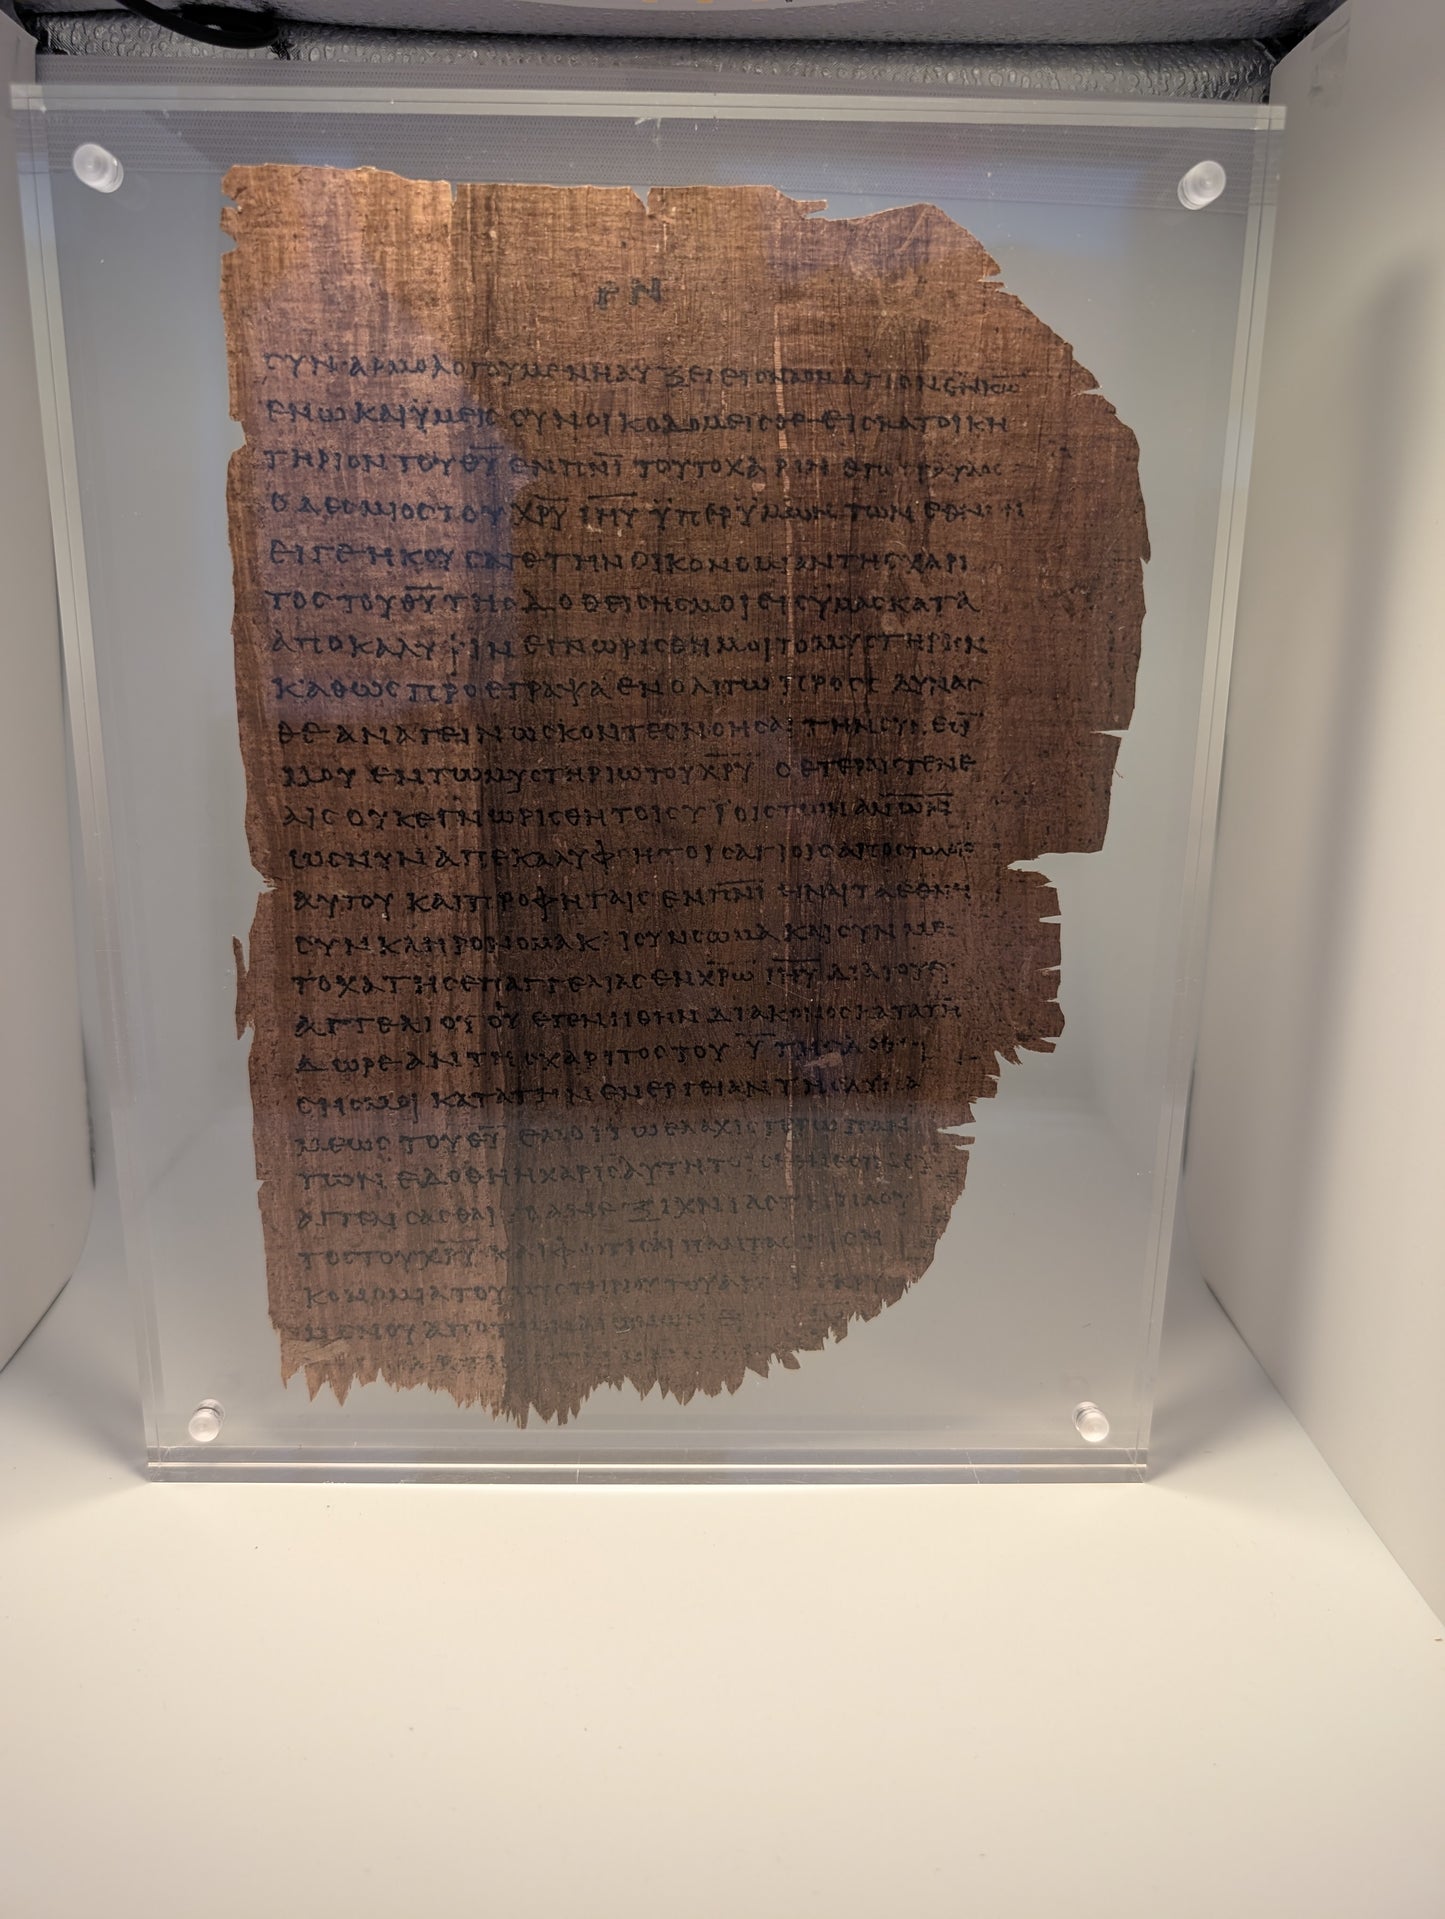 ΡΝ
ϹΥΝΑΡΜΟΛΟΓΟΥΜΕΝΗΑΥΞΕΙΕΙϹΝΑΟΝΑΓΙΟΝΕΝΚ̅Ω̅
ΕΝΩΚΑΙΥΜΕΙϹϹΥΝΟΙΚΟΔΟΜΕΙϹΘΕΕΙϹΚΑΤΟΙΚΗ
ΤΗΡΙΟΝΤΟΥΘ̅Υ̅ΕΝΠ̅Ν̅Ι̅ΤΟΥΤΟΧΑΡΙΝ
ΟΔΕϹΜΙΟϹΤΟΥΧ̅Ρ̅Υ̅Ι̅Η̅Υ̅ΫΠΕΡΫΜΩΝΤΩΝΕΘΝΩ
ΕΙΓΕΗΚΟΥϹΑΤΕΤΗΝΟΙΚΟΝΟΜΙΑΝΤΗϹΧΑΡΙ
ΤΟϹΤΟΥΘ̅Υ̅ΤΗϹΔΟΘΕΙϹΗϹΜΟΙΕΙϹΥΜΑϹΚΑΤΑ
ΑΠΟΚΑΛΥΨΙΝΕΓΝΩΡΙϹΘΗΜΟΙΤΟΜΥϹΤΗΡΙΟΝ
ΚΑΘΩϹΠΡΟΕΓΡΑΨΑΕΝΟΛΙΓΩΠΡΟϹΟΔΥΝΑϹ
ΘΕΑΝΑΓΕΙΝΩϹΚΟΝΤΕϹΝΟΗϹΑΙΤΗΝϹΥΝΕϹΙΝ
ΜΟΥΕΝΤΩΜΥϹΤΗΡΙΩΤΟΥΧ̅Ρ̅Υ̅ΟΕΤΕΡΑΙϹΓΕΝΕ
ΑΙϹΟΥΚΕΓΝΩΡΙϹΘΗΤΟΙϹΥΪΟΙϹΤΩΝΑ̅Ν̅Ω̅Ν̅
ΩϹΝΥΝΑΠΕΚΑΛΥΦΘΗΤΟΙϹΑΓΙΟΙϹΑΠΟϹΤΟΛΟΙϹ
ΑΥΤΟΥΚΑΙΠΡΟΦΗΤΑΙϹΕΝΠ̅Ν̅Ι̅ΕΙΝΑΙΤΑΕΘΝΗ
ϹΥΝΚΛΗΡΟΝΟΜΑΚΑΙϹΥΝϹΩΜΑΚΑΙϹΥΝΜΕ
ΤΟΧΑΤΗϹΕΠΑΓΓΕΛΙΑϹΕΝΧ̅Ρ̅Ω̅Ι̅Η̅Υ̅ΔΙΑΤΟΥΕΥ
ΑΓΓΕΛΙΟΥΟΥΕΓΕΝΗΘΗΝΔΙΑΚΟΝΟϹΚΑΤΑΤΗ
ΔΩΡΕΑΝΤΗϹΧΑΡΙΤΟϹΤΟΥΘ̅Υ̅ΤΗϹΔΟΘΕΙ
ϹΗϹΜΟΙΚΑΤΑΤΗΝΕΝΕΡΓΕΙΑΝΤΗϹΔΥΝΑ
ΜΕΩϹΤΟΥΘ̅Υ̅ΕΜΟΙΤΩΕΛΑΧΙϹΤΟΤΕΡΩΠΑΝ
ΤΩΝΕΔΟΘΗΗΧΑΡΙϹΑΥΤΗΤΟΙϹΕΘΝΕϹΙΝΕΥ
ΑΓΓΕΛΙϹΑϹΘΑΙΤΟΑΝΕΞΙΧΝΙΑϹΤΟΝΠΛΟΥ
ΤΟϹΤΟΥΧ̅Ρ̅Υ̅ΚΑΙΦΩΤΙϹΑΙΠΑΝΤΑϹ
ΚΟΝΟΜΙΑΤΟΥΜΥϹΤΗΡΙΟΥΤΟΥ
ΜΕΝΟΥΑΠΟΤΩΝΑΙΩΝΩΝ